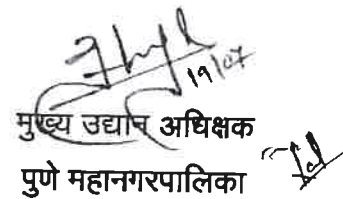 19/07
मुख्य उद्यान अधिक्षक
पुणे महानगरपालिका